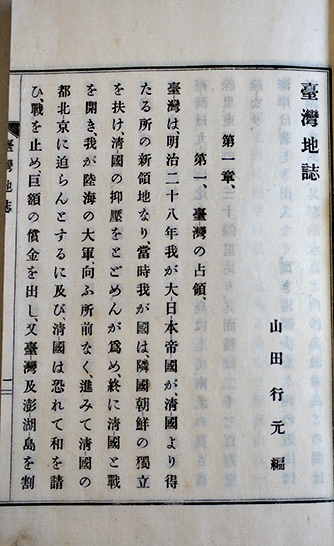 臺灣地誌
山田行元編
第一章、
第一、臺灣の占領、
臺灣は、明治二十八年我が大日本帝國が、清國より得
たる所の新領地なり、當時我が國は、隣國朝鮮の獨立
を扶け、清國の抑壓をとどめんが爲め、終に清國と戰
を開き、我が陸海の大軍、向ふ所前なく、進みて清國の
都北京に迫らんとするに及び、清國は恐れて和を請
ひ、戰を止め、巨額の償金を出し、又臺灣及澎湖島を割
臺灣地誌
一